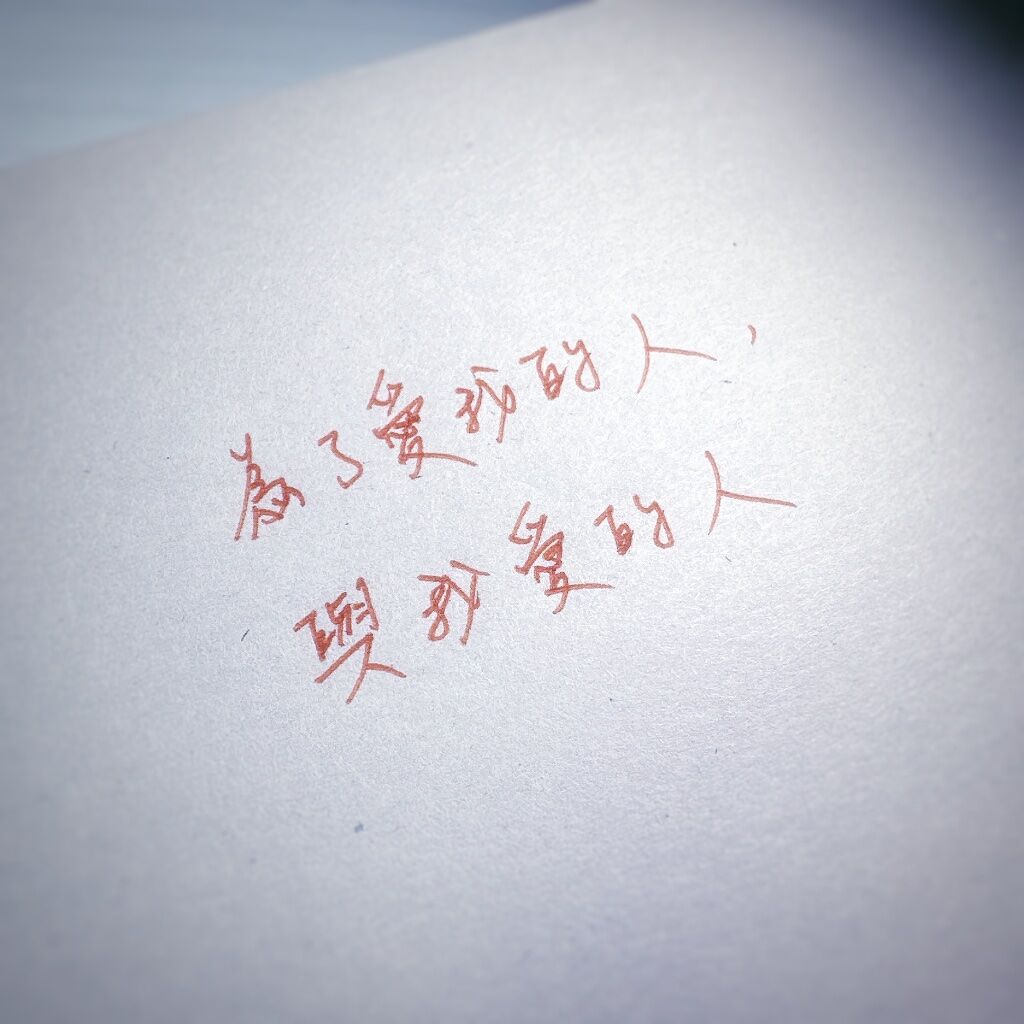 為了愛我的人,
與我愛的人